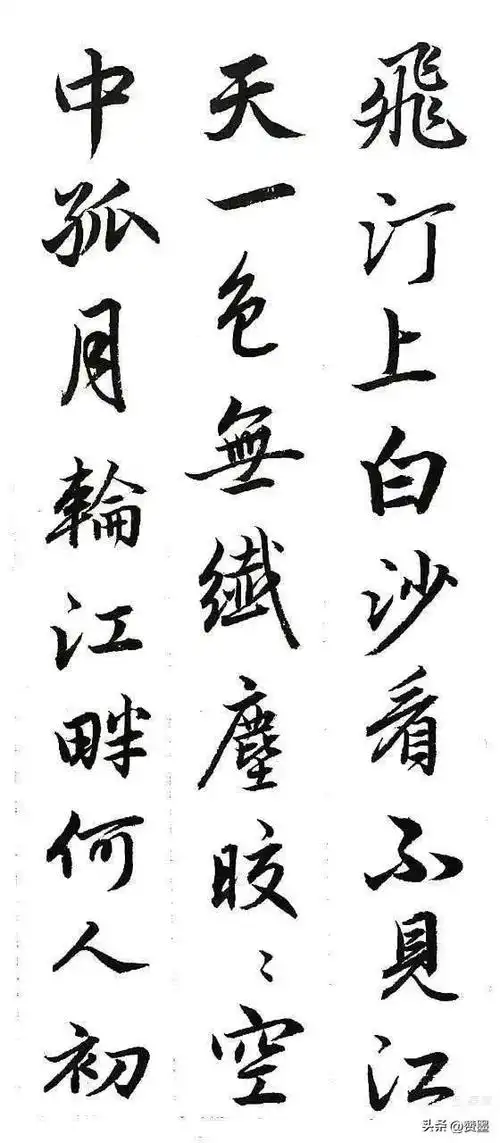 飛汀上白沙看不見江
天一色無纖塵皎〻空
中孤月輪江畔何人初
头条@赞墨